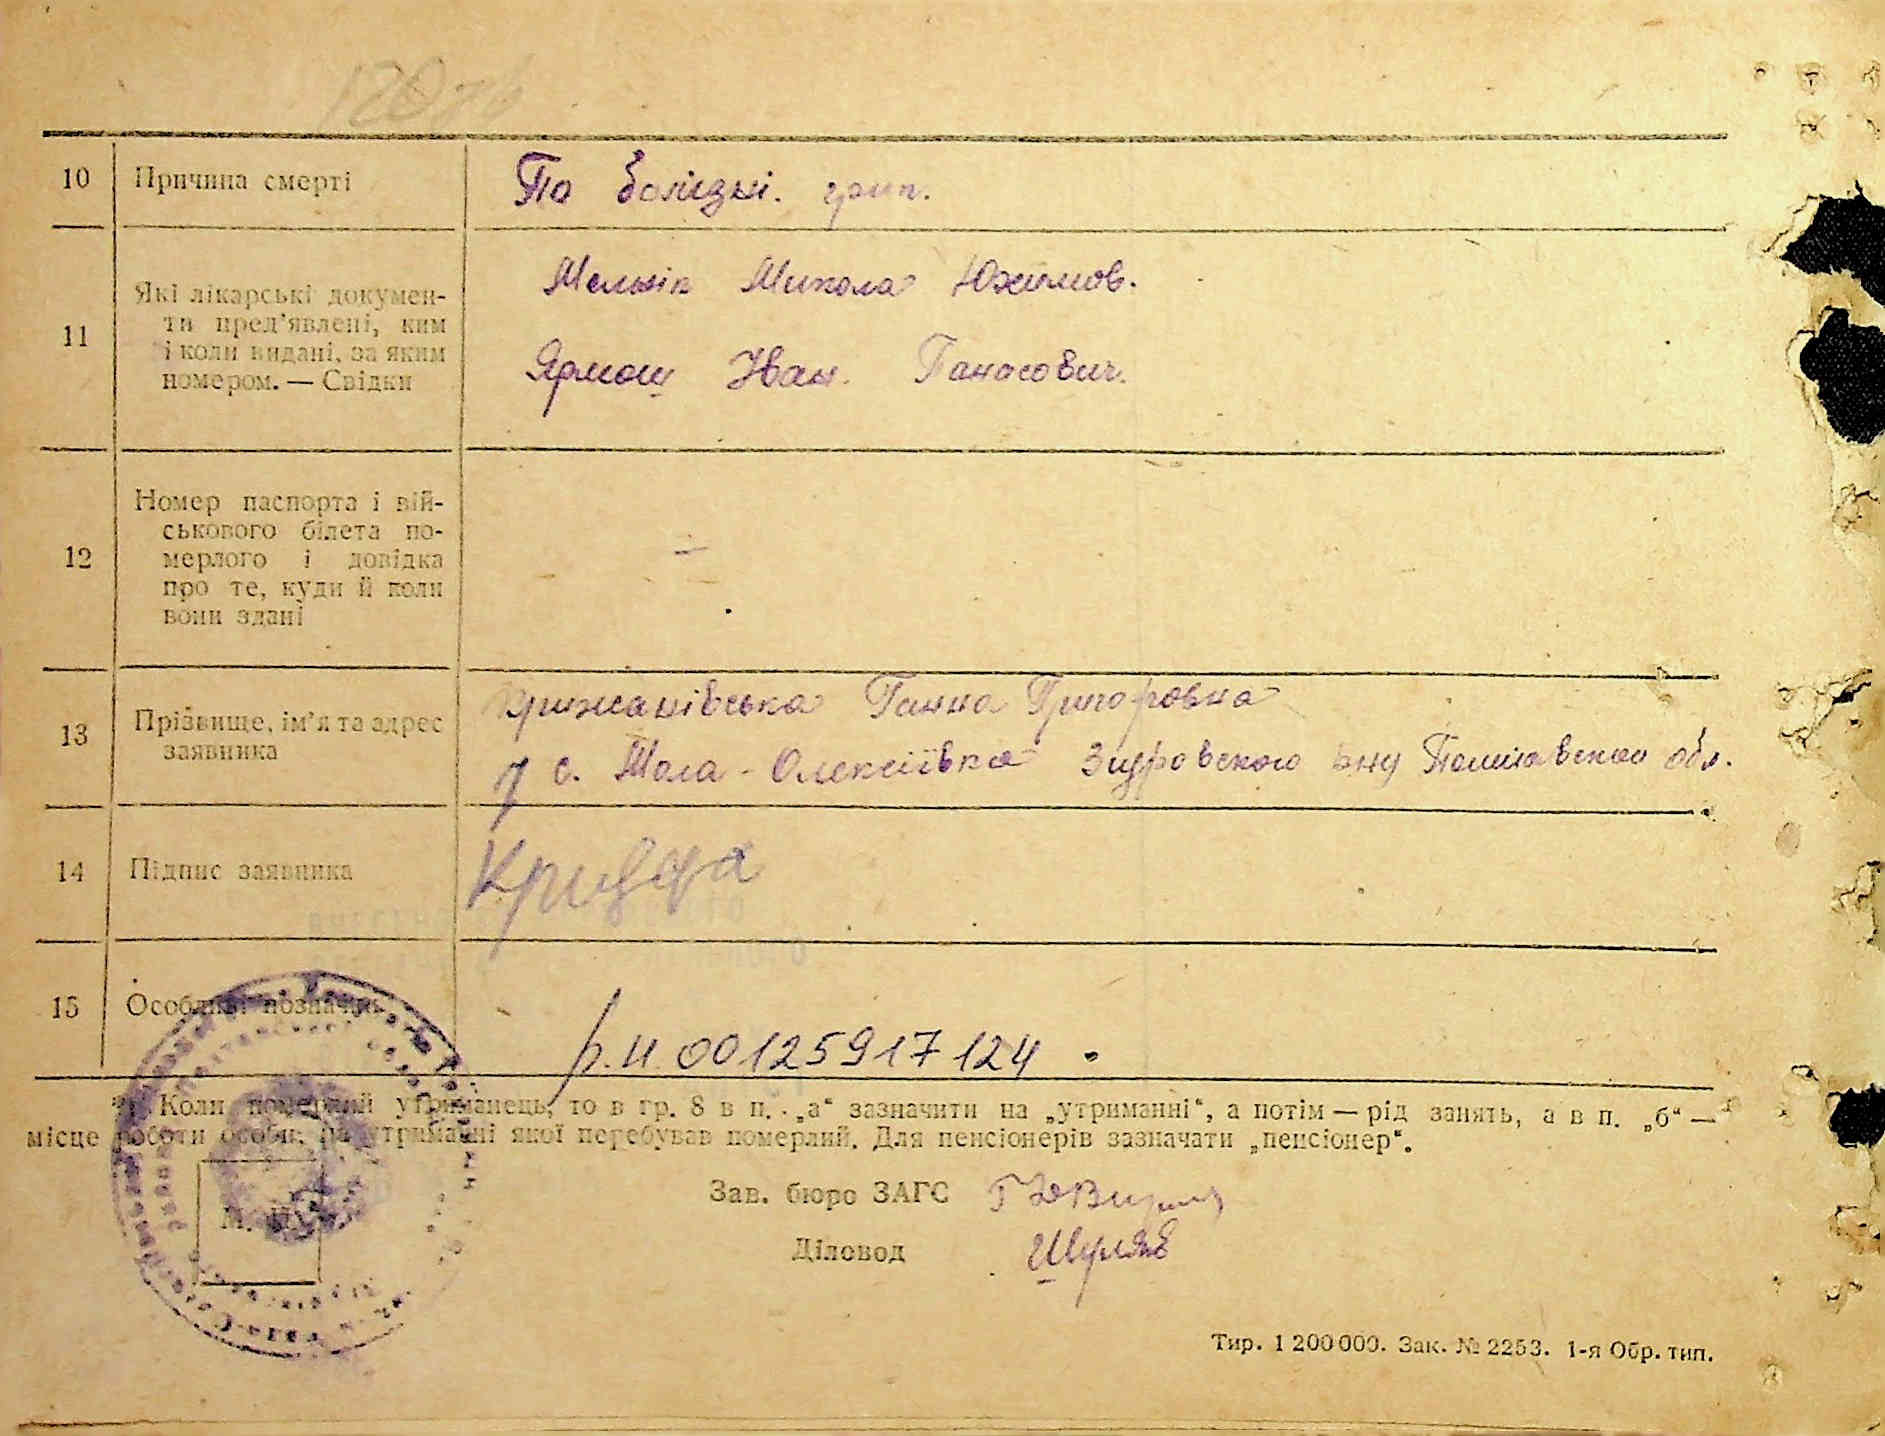 10 Причина смерті По болізні. грип.
11 Які лікарські докумен-
ти пред'явлені, ким
і коли видані, за яким
номером. — Свідки
Мельнік Микола Юхимов.
Ярмош Іван. Панасович.
12 Номер паспорта і вій-
ськового білета по-
мерлого і довідка
про те, куди й коли
вони здані
—
13 Прізвище, ім'я та адрес
заявника
Крижанівська Ганна Григоровна
с. Мала-Олексіївка Згуровского р-ну Полтавской обл.
14 Підпис заявника
15 Особливі позначки
р.н 00125917124.
*) Коли померлий утриманець, то в гр. 8 в п. „а“ зазначити на „утриманні“, а потім — рід занять, а в п. „б“ —
місце роботи особи, на утриманні якої перебував померлий. Для пенсіонерів зазначати „пенсіонер“.
Зав. бюро ЗАГС
Діловод
Тир. 1 200 000. Зак. № 2253. 1-я Обр. тип.